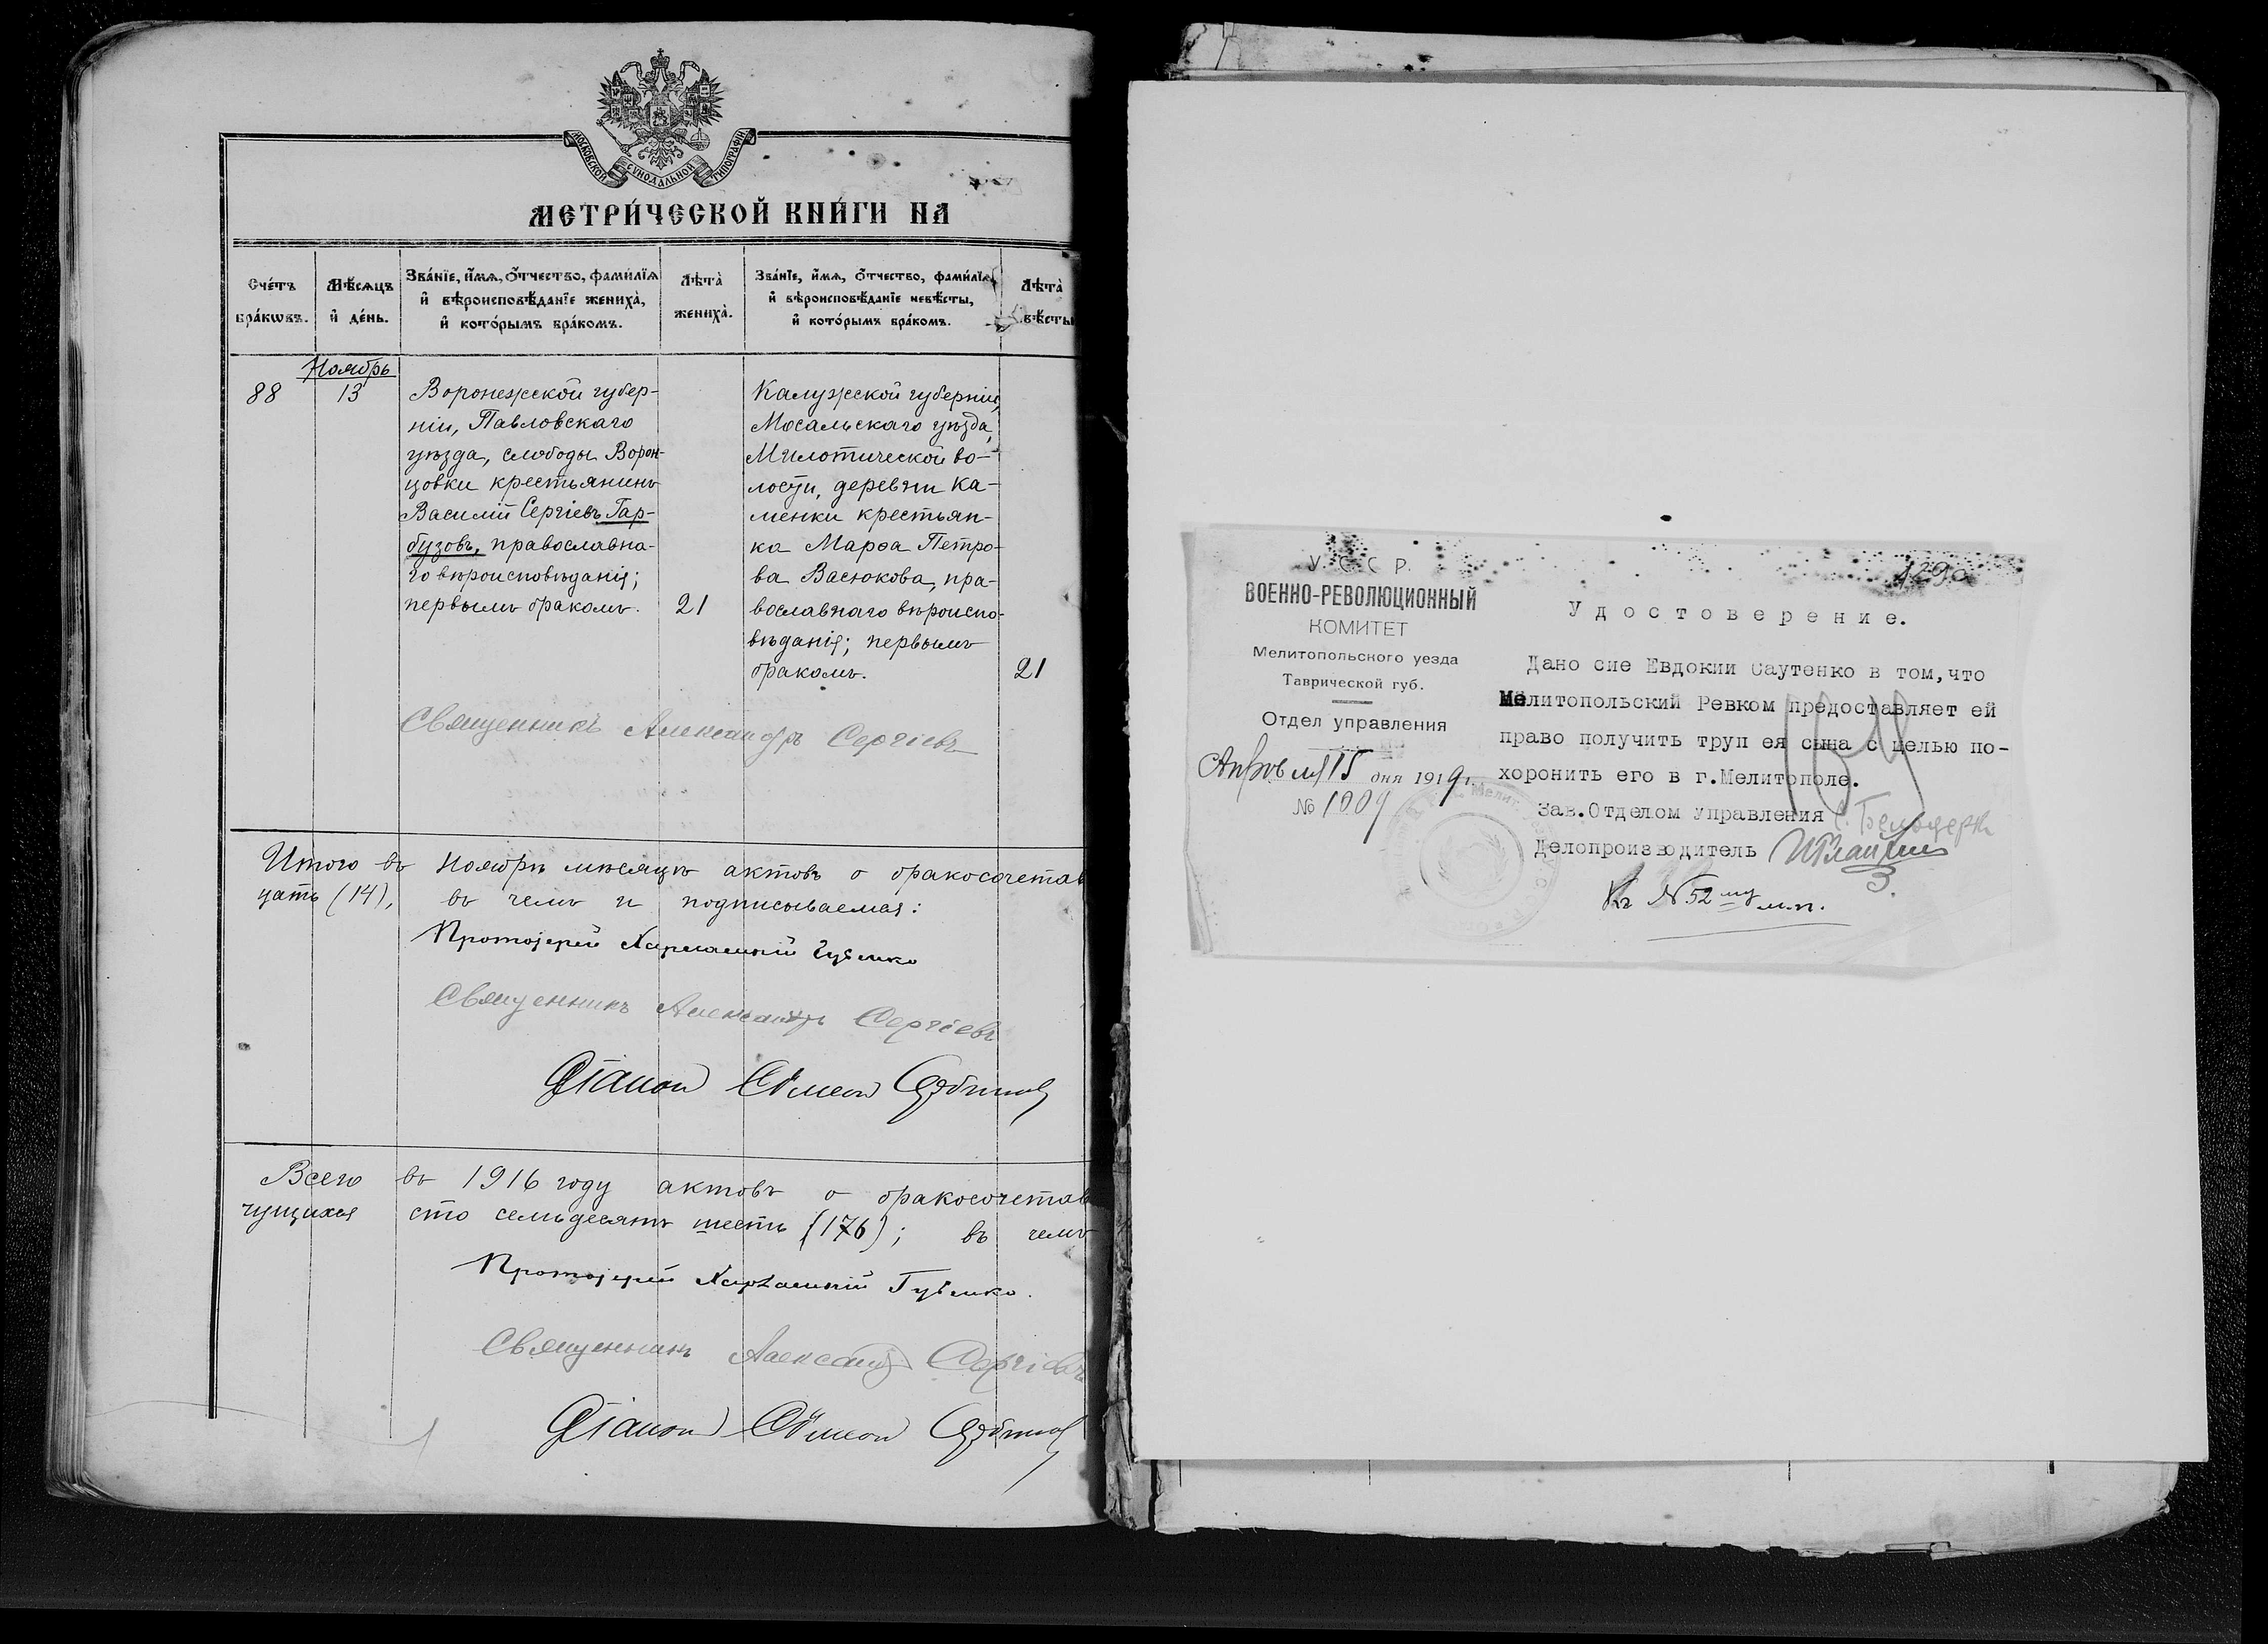 МОСКОВСКОЙ СѴНОДАЛЬНОЙ ТИПОГРАФІИ
МЕТРИ́ЧЕСКОЙ КНИ́ГИ НА
Сче́тъ бра́кѡвъ.
Мѣ́сяцъ и де́нь.
Зва́нїе, и́мѧ, ѻ́тчество, фами́лїѧ
и҆ вѣроисповѣ́данїе жениха̀,
и҆ кото́рымъ бра́комъ.
Лѣта̀ жениха̀.
Зва́нїе, и́мѧ, ѻ́тчество, фами́лїѧ
и҆ вѣроисповѣ́данїе невѣ́сты,
и҆ кото́рымъ бра́комъ.
Лѣта̀
вѣ́сты
Ноябрь
88
13
Воронежской губер-
ніи, Павловскаго
уѣзда, слободы Ворон-
цовки крестьянинъ
Василій Сергіевъ Гар-
бузовъ, православна-
го вѣроисповѣданія;
первымъ бракомъ.
21
Калужской губерніи,
Мосальскаго уѣзда,
Милотической во-
лости, деревни Ка-
менки крестьян-
ка Марѳа Петро-
ва Васюкова, пра-
вославнаго вѣроиспо-
вѣданія; первымъ
бракомъ.
21
Священникъ Александръ Сергіевъ
Итого въ Ноябрѣ мѣсяцѣ актовъ о бракосочетав
цать (14), въ чемъ и подписываемся:
Протоіерей Харлампій Губенко
Священникъ Александръ Сергіевъ
Діаконъ Сѵмеонъ
Всего въ 1916 году актовъ о бракосочетав
чущихся сто семьдесятъ шесть (176); въ чемъ
Протоіерей Харлампій Губенко.
Священникъ Александръ Сергіевъ
Діаконъ Сѵмеонъ
У. С. С. Р.
ВОЕННО-РЕВОЛЮЦИОННЫЙ
КОМИТЕТ
Мелитопольского уезда
Таврической губ.
Отдел управления
Апреля 15 дня 1919 г.
№ 1009
Удостоверение.
Дано сие Евдокии Саутенко в том, что
Мелитопольский Ревком предоставляет ей
право получить труп ея сына с целью по-
хоронить его в г.Мелитополе.
Зав.Отделом Управления
Делопроизводитель
Къ № 52 му м.п.